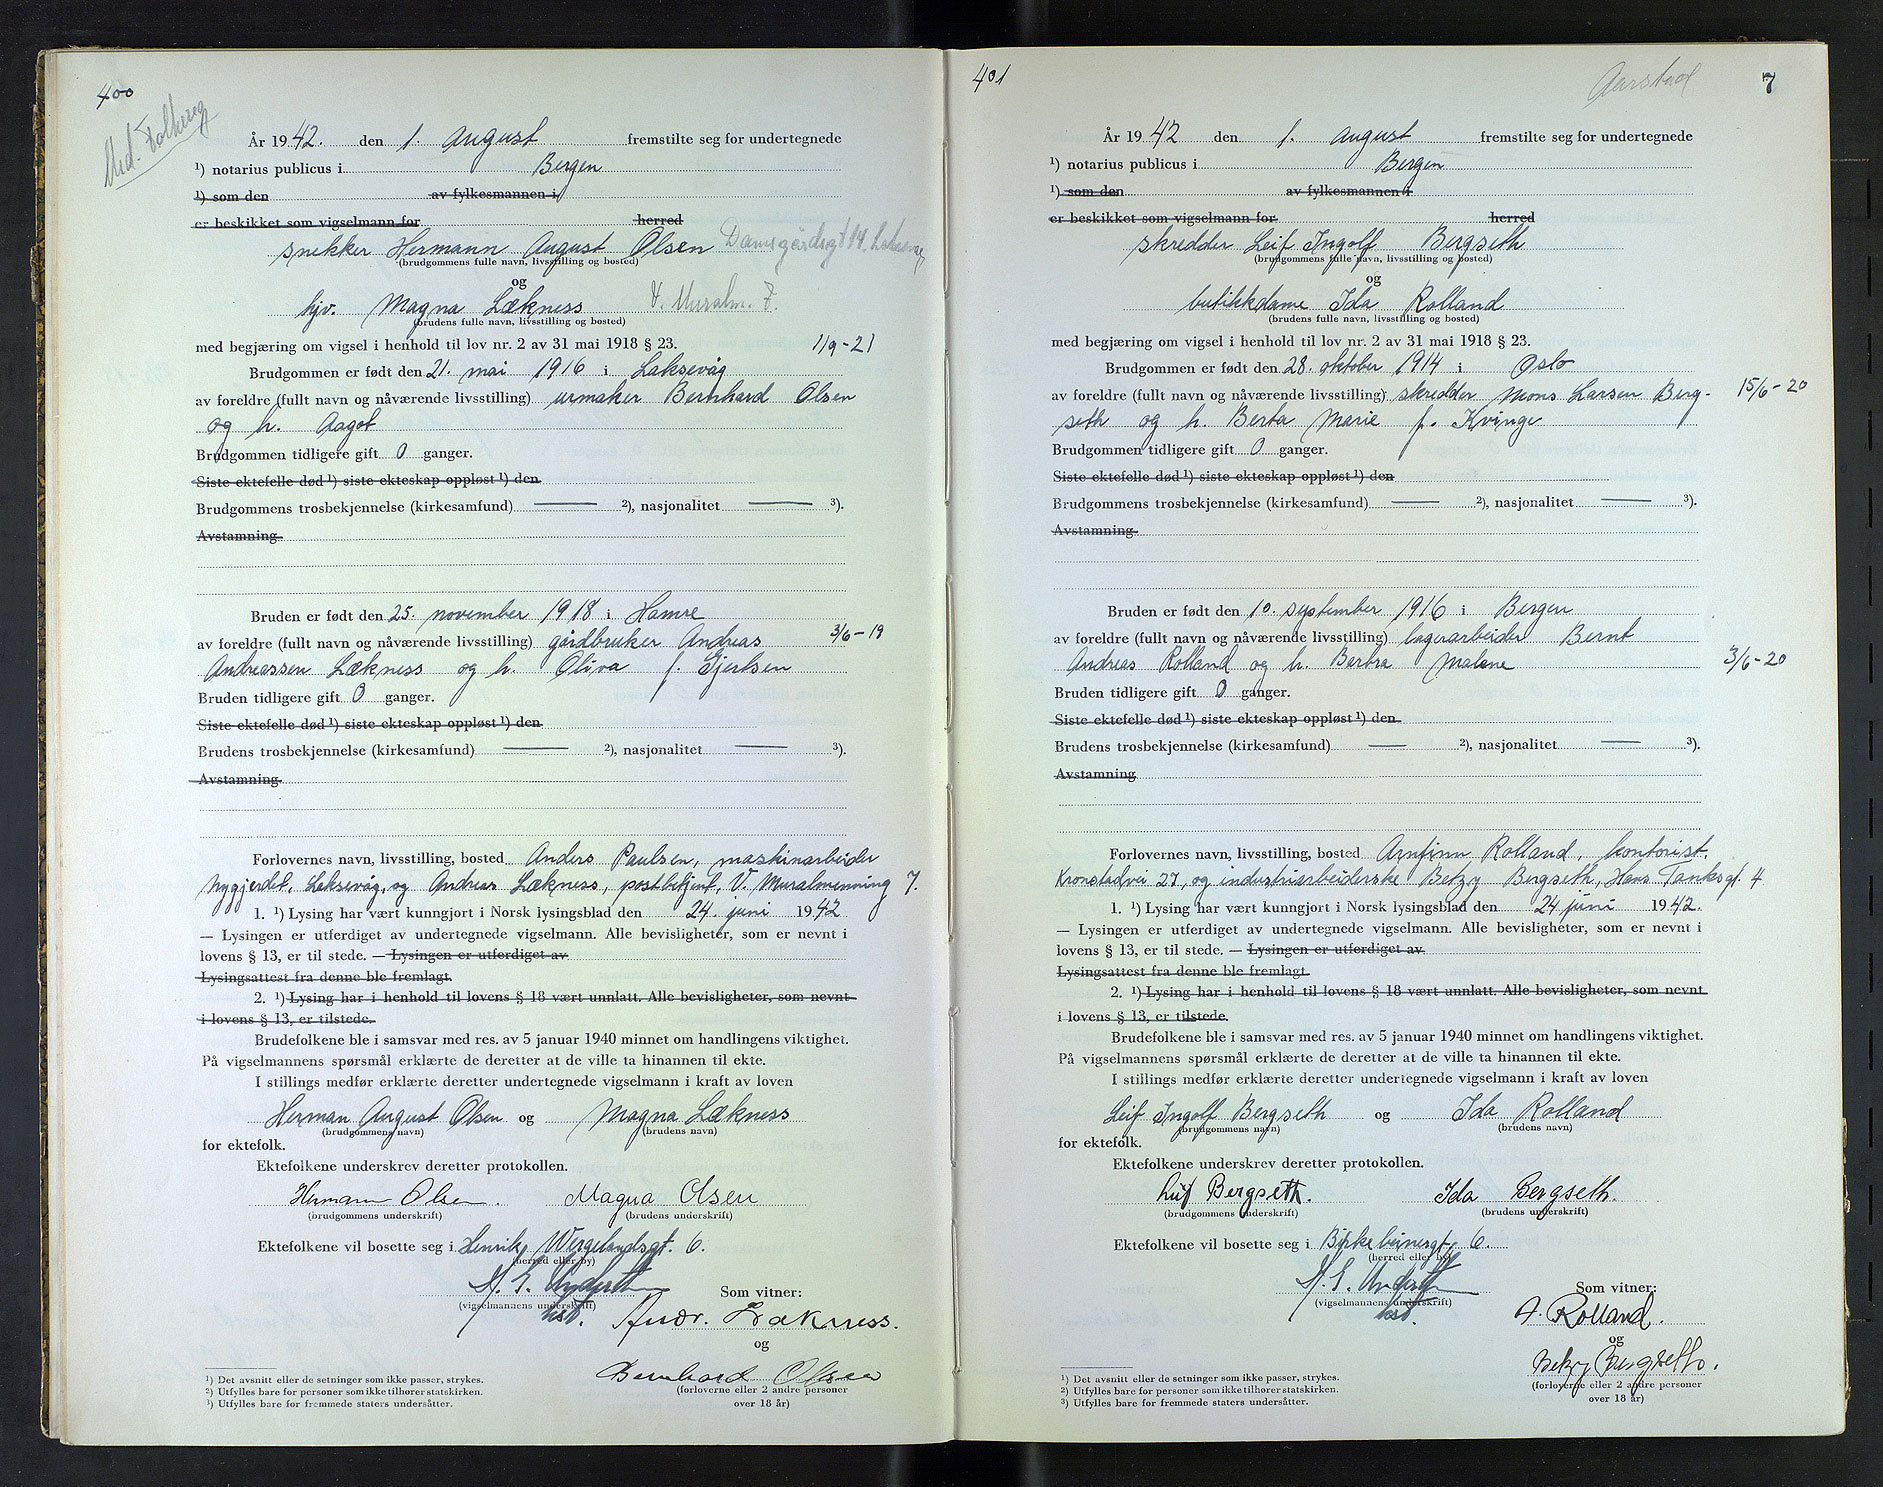 400
Med. Folkereg
År 1942. den 1. August fremstilte seg for undertegnede
¹) notarius publicus i Bergen
¹) som den av fylkesmannen i
er beskikket som vigselmann for herred
snekker Hermann August Olsen Damsgårdsgt 14, Laksevåg
(brudgommens fulle navn, livsstilling og bosted)
og
hjv. Magna Lækness V. Muralm. 7.
(brudens fulle navn, livsstilling og bosted)
med begjæring om vigsel i henhold til lov nr. 2 av 31 mai 1918 § 23. 11/9-21
Brudgommen er født den 21. mai 1916 i Laksevåg
av foreldre (fullt navn og nåværende livsstilling) urmaker Bernhard Olsen
og h. Aagot
Brudgommen tidligere gift 0 ganger.
Siste ektefelle død ¹) siste ekteskap oppløst ¹) den
Brudgommens trosbekjennelse (kirkesamfund) — ²), nasjonalitet — ³).
Avstamning
Bruden er født den 25. november 1918 i Hamre
av foreldre (fullt navn og nåværende livsstilling) gårdbruker Andreas 3/6-19
Andreassen Lækness og h. Oliva f. Gjertsen
Bruden tidligere gift 0 ganger.
Siste ektefelle død ¹) siste ekteskap oppløst ¹) den
Brudens trosbekjennelse (kirkesamfund) — ²), nasjonalitet — ³).
Avstamning
Forlovernes navn, livsstilling, bosted Anders Paulsen, maskinarbeider
Nygjerdet, Laksevåg, og Andreas Lækness, postbetjent, V. Muralmenning 7.
1. ¹) Lysing har vært kunngjort i Norsk lysingsblad den 24. juni 1942
— Lysingen er utferdiget av undertegnede vigselmann. Alle bevisligheter, som er nevnt i
lovens § 13, er til stede. — Lysingen er utferdiget av
Lysingsattest fra denne ble fremlagt.
2. ¹) Lysing har i henhold til lovens § 18 vært unnlatt. Alle bevisligheter, som nevnt
i lovens § 13, er tilstede.
Brudefolkene ble i samsvar med res. av 5 januar 1940 minnet om handlingens viktighet.
På vigselmannens spørsmål erklærte de deretter at de ville ta hinannen til ekte.
I stillings medfør erklærte deretter undertegnede vigselmann i kraft av loven
Herman August Olsen og Magna Lækness
(brudgommens navn) (brudens navn)
for ektefolk.
Ektefolkene underskrev deretter protokollen.
Hermann Olsen. Magna Olsen
(brudgommens underskrift) (brudens underskrift)
Ektefolkene vil bosette seg i Henrik Wergelandsgt. 6.
(herred eller by)
(vigselmannens underskrift) Som vitner:
kst. Andr. Lækness.
og
Bernhard Olsen
(forloverne eller 2 andre personer
over 18 år)
¹) Det avsnitt eller de setninger som ikke passer, strykes.
²) Utfylles bare for personer som ikke tilhører statskirken.
³) Utfylles bare for fremmede staters undersåtter.
401 Aarstad 7
År 1942 den 1. august fremstilte seg for undertegnede
¹) notarius publicus i Bergen
¹) som den av fylkesmannen i
er beskikket som vigselmann for herred
skredder Leif Ingolf Bergseth
(brudgommens fulle navn, livsstilling og bosted)
og
butikkdame Ida Rolland
(brudens fulle navn, livsstilling og bosted)
med begjæring om vigsel i henhold til lov nr. 2 av 31 mai 1918 § 23.
Brudgommen er født den 28. oktober 1914 i Oslo
av foreldre (fullt navn og nåværende livsstilling) skredder Mons Larsen Berg- 15/6-20
seth og h. Berta Marie f. Kvinge
Brudgommen tidligere gift 0 ganger.
Siste ektefelle død ¹) siste ekteskap oppløst ¹) den
Brudgommens trosbekjennelse (kirkesamfund) — ²), nasjonalitet — ³).
Avstamning
Bruden er født den 10. september 1916 i Bergen
av foreldre (fullt navn og nåværende livsstilling) lagerarbeider Bernt
Andreas Rolland og h. Barbra Malene 3/6-20
Bruden tidligere gift 0 ganger.
Siste ektefelle død ¹) siste ekteskap oppløst ¹) den
Brudens trosbekjennelse (kirkesamfund) — ²), nasjonalitet — ³).
Avstamning
Forlovernes navn, livsstilling, bosted Arnfinn Rolland, kontorist,
Kronstadvei 27, og industriarbeiderske Betzy Bergseth, Hans Tanksgt. 4
1. ¹) Lysing har vært kunngjort i Norsk lysingsblad den 24 juni 1942.
— Lysingen er utferdiget av undertegnede vigselmann. Alle bevisligheter, som er nevnt i
lovens § 13, er til stede. — Lysingen er utferdiget av
Lysingsattest fra denne ble fremlagt.
2. ¹) Lysing har i henhold til lovens § 18 vært unnlatt. Alle bevisligheter, som nevnt
i lovens § 13, er tilstede.
Brudefolkene ble i samsvar med res. av 5 januar 1940 minnet om handlingens viktighet.
På vigselmannens spørsmål erklærte de deretter at de ville ta hinannen til ekte.
I stillings medfør erklærte deretter undertegnede vigselmann i kraft av loven
Leif Ingolf Bergseth og Ida Rolland
(brudgommens navn) (brudens navn)
for ektefolk.
Ektefolkene underskrev deretter protokollen.
Leif Bergseth. Ida Bergseth.
(brudgommens underskrift) (brudens underskrift)
Ektefolkene vil bosette seg i Birkebeinergt. 6.
(herred eller by)
(vigselmannens underskrift) Som vitner:
kst. A. Rolland.
og
Betzy Bergseth.
(forloverne eller 2 andre personer
over 18 år)
¹) Det avsnitt eller de setninger som ikke passer, strykes.
²) Utfylles bare for personer som ikke tilhører statskirken.
³) Utfylles bare for fremmede staters undersåtter.